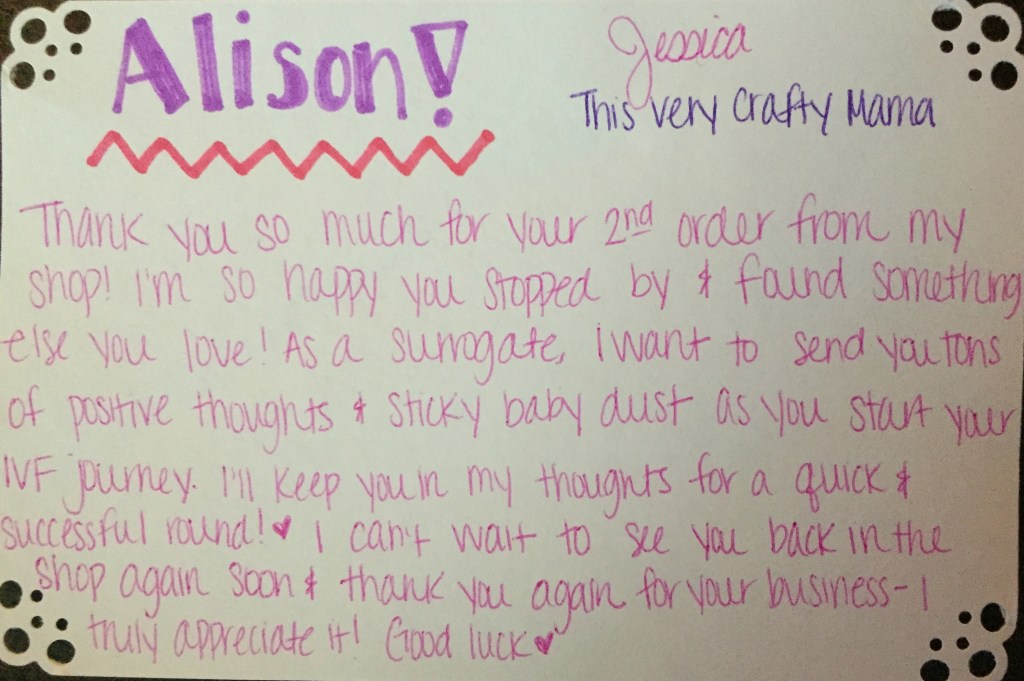 Alison!
Jessica
This Very Crafty Mama
Thank you so much for your 2nd order from my
shop! I'm so happy you stopped by & found something
else you love! As a surrogate, I want to send you tons
of positive thoughts & sticky baby dust as you start your
IVF journey. I'll keep you in my thoughts for a quick &
successful round!♥ I can't wait to see you back in the
shop again soon & thank you again for your business- I
truly appreciate it! Good luck♥